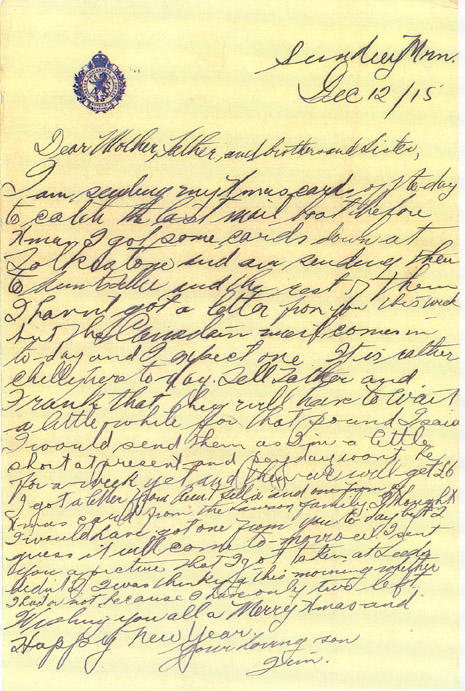 Sunday Mrn.
Dec 12/15
Dear Mother, Father, and brother and Sister,
I am sending my Xmas cards off to-day
to catch the last mail boat before
Xmas I got some cards down at
Folkstone and am sending them
to and the rest of them
I havn't got a letter from you this week
but the Canadain mail comes in
to-day and I expect one. It is rather
chelly here to day. Tell Father and
Frank that they will have to wait
a little while for that pound I said
I would send them as I'm a little
short at present and payday wont be
for a week yet and then we will get £6
I got a letter from Aunt and
Xmas card from the Lawson family. I thought
I would have got one from you to day but I
guess it will come to-morrow. I sent
you a picture that I got taken at Leeds
didn't I. I was thinking this morning whether
I had or not, because I have only two left.
Wishing you all a Merry Xmas and
Happy New Year.
Your loving son
Jim.